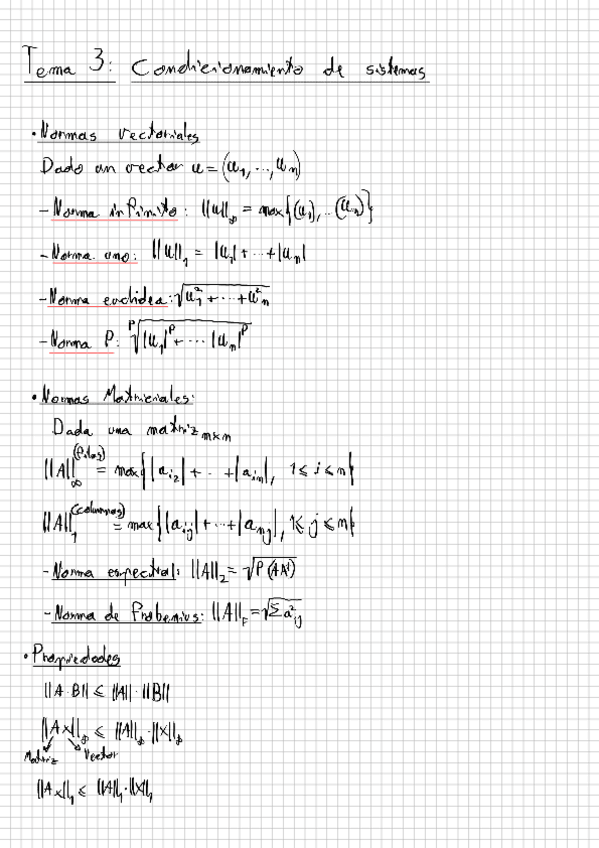 Tema 3: Condicionamiento de sistemas
• Normas vectoriales
Dado un vector u = (u₁, ..., uₙ)
- Norma infinito: ||u||∞ = max{(u₁), ...(uₙ)}
- Norma uno: ||u||₁ = |u₁| + ... + |uₙ|
- Norma euclidea: √(u₁² + ... + u²ₙ)
- Norma P: ᵖ√(|u₁|ᵖ + ... |uₙ|ᵖ)
• Normas Matriciales:
Dada una matriz ₘₓₙ
||A||∞ (filas) = max{|aᵢ₂| + .. + |aᵢₙ|, 1 ≤ i ≤ n}
||A||₁ (columnas) = max{|aᵢⱼ| + ... + |aₙⱼ|, 1 ≤ j ≤ n}
- Norma espectral: ||A||₂ = √(P(AAᵗ))
- Norma de Frobenius: ||A||F = √(Σ a²ᵢⱼ)
• Propiedades
||A·B|| ≤ ||A||·||B||
||Ax||∞ ≤ ||A||∞·||x||∞
Matriz Vector
||Ax||₁ ≤ ||A||₁·||x||₁